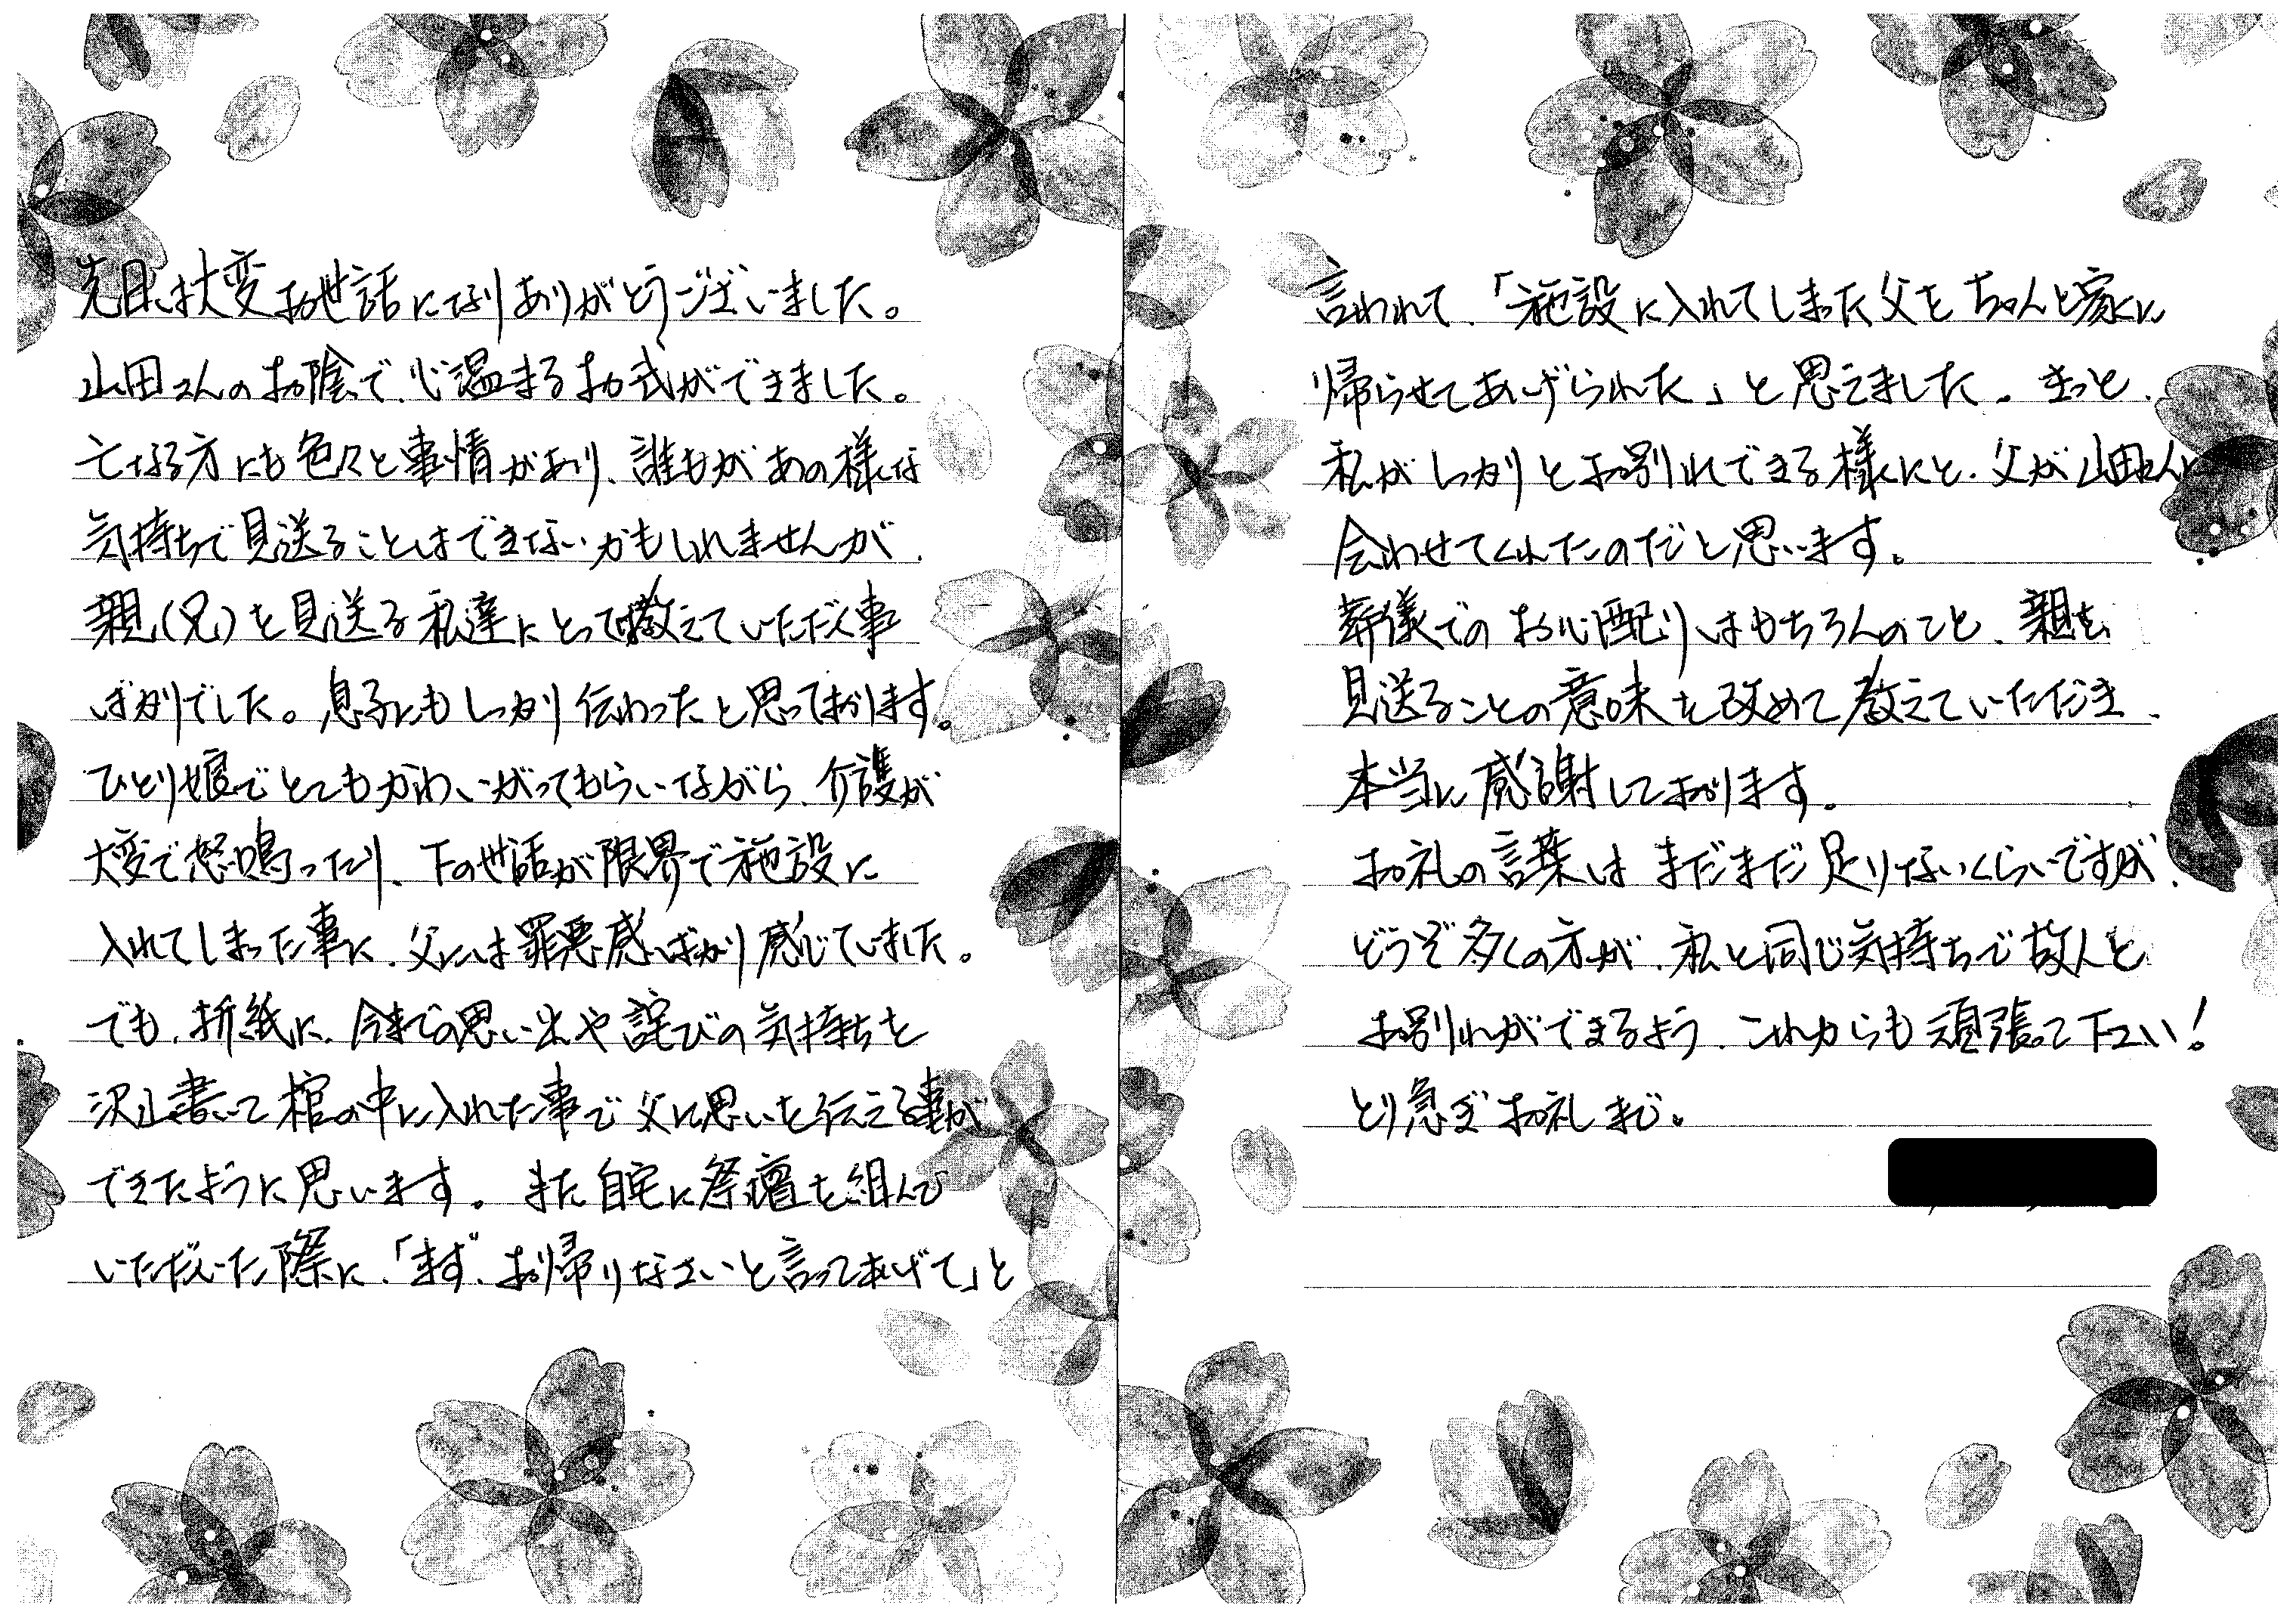 先日は大変お世話になりありがとうございました。
山田さんのお陰で、心温まるお式ができました。
亡なる方にも色々と事情があり、誰もがあの様な
気持ちで見送ることはできないかもしれませんが、
親(兄)を見送る私達にとって教えていただく事
ばかりでした。息子にもしっかり伝わったと思っております。
ひとり娘でとてもかわいがってもらいながら、介護が
大変で怒鳴ったり、下の世話が限界で施設に
入れてしまった事に、父には罪悪感ばかり感じていました。
でも、折紙に、今までの思い出や詫びの気持ちを
沢山書いて棺の中に入れた事で父に思いを伝える事が
できたように思います。また自宅に祭壇を組んで
いただいた際に、「まず、お帰りなさいと言ってあげて」と
言われて、「施設に入れてしまった父をちゃんと家に
帰らせてあげられた」と思えました。きっと、
私がしっかりとお別れできる様にと、父が山田さんに
会わせてくれたのだと思います。
葬儀でのお心配りはもちろんのこと、親を
見送ることの意味を改めて教えていただき、
本当に感謝しております。
お礼の言葉はまだまだ足りないくらいですが、
どうぞ多くの方が、私と同じ気持ちで故人と
お別れができるよう、これからも頑張って下さい!
とり急ぎお礼まで。